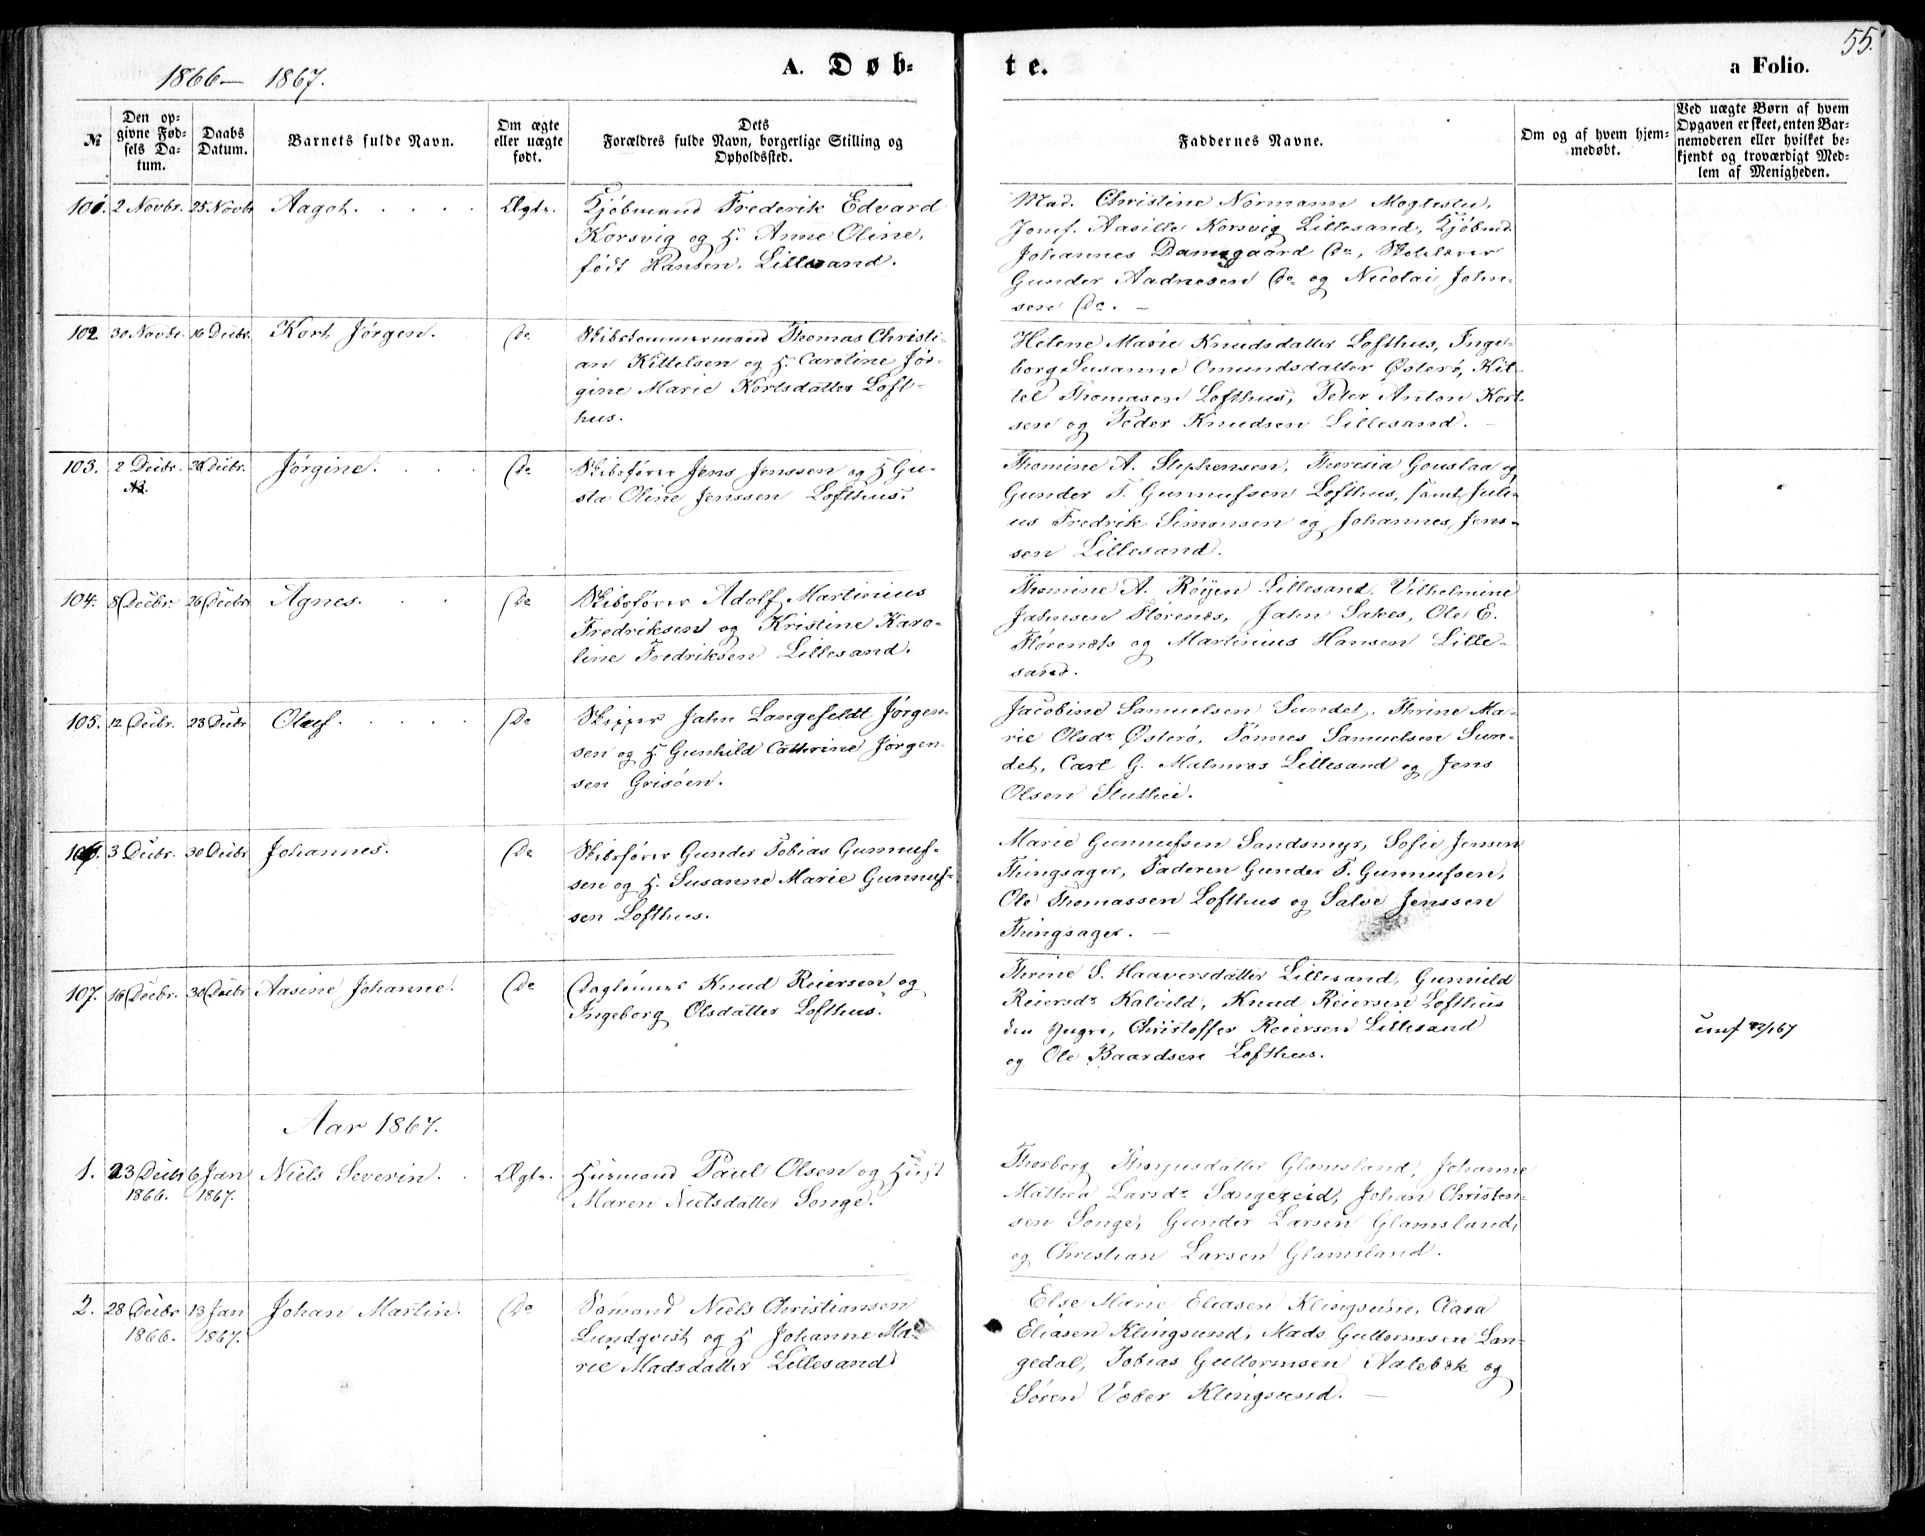 55.
1866 — 1867.
A. Døb-
te.
a Folio.
№
Den op-
givne Fød-
sels Da-
tum.
Daabs
Datum.
Barnets fulde Navn.
Om ægte
eller uægte
født.
Dets
Forældres fulde Navn, borgerlige Stilling og
Opholdssted.
Faddernes Navne.
Om og af hvem hjem-
medøbt.
Ved uægte Børn af hvem
Opgaven er skeet, enten Bar-
nemoderen eller hvilket be-
kjendt og troværdigt Med-
lem af Menigheden.
101. 2 Novbr. 25 Novbr Aagot. Ægte.
Kjøbmand Frederik Edvard
Korsvig og H. Anne Oline,
født Hansen, Lillesand.
Mad. Christine Normann Moglestu,
Jomf. Aasille Korsvig Lillesand, Kjøbmd
Johannes Damsgaard Do, Skolelærer
Gunder Aadnesen Do og Nicolai John-
sen Do. —
102. 30 Novbr. 16 Decbr. Kort Jørgen. Do
Skibstømmermand Thomas Christi-
an Kittelsen og H. Caroline Jør-
gine Marie Kortsdatter Loft-
hus.
Helene Marie Knudsdatter Lofthus, Inge-
borg Susanne Omundsdatter Østerø, Kit-
tel Thomasen Lofthus, Peter Anton Kort-
sen og Peder Knudsen Lillesand. —
103. 2 Decbr. 26 Decbr. Jørgine. Do
Skibsfører Jens Jenssen og H Gu-
sta Oline Jenssen Lofthus.
Thomine A. Stephensen, Theresia Gouslaa og
Gunder T. Gunnufsen Lofthus, samt Juli-
us Fredrik Simonsen og Johannes Jens-
sen Lillesand.
104. 8 Decbr. 26 Decbr Agnes. Do
Skibsfører Adolf Martinius
Fredriksen og Kristine Karo-
line Fredriksen Lillesand.
Thomine A. Røyen Lillesand, Vilhelmine
Jahnsen Florenes, Jahn Sakes, Ole E.
Florenæs og Martinius Hansen Lille-
sand.
105. 12 Decbr. 23 Decbr Oluf. Do
Skipper Jahn Langefeldt Jørgen-
sen og H Gunhild Cathrine Jørgen-
sen Grisøen.
Jacobine Samuelsen Sundet, Thrine Ma-
rie Olsdr Østerø, Tønnes Samuelsen Sun-
det, Carl G. Malmros Lillesand og Jens
Olsen
106. 3 Decbr. 30 Decbr Johannes. Do
Skibsfører Gunder Tobias Gunnuf-
sen og H. Susanne Marie Gunnuf-
sen Lofthus.
Marie Gunnufsen Sandsmyr, Sofie Jensen
Thingsager, Faderen Gunder T. Gunnufsen,
Ole Thomassen Lofthus og Salve Jenssen
Thingsager. —
107. 16 Decbr. 30 Decbr Aasine Johanne. Do
Daglønner Knud Reiersen og
Ingeborg Olsdatter Lofthus.
Thrine S. Haaversdatter Lillesand, Gunnild
Reiersdr Kalvild, Knud Reiersen Lofthus
den yngre, Christoffer Reiersen Lillesand
og Ole Baardsen Lofthus.
Aar 1867.
1. 23 Decbr 6 Jan Niels Severin. Ægte.
1866. 1867.
Huusmand Paul Olsen og Hust
Maren Nielsdatter Songe.
Thorborg Glamsland, Johanne
Mathea Larsdr Sangereid, Johan Christen-
sen Songe, Gunder Larsen Glamsland,
og Christian Larsen Glamsland.
2. 28 Decbr 13 Jan Johan Martin. Do
1866. 1867.
Sømand Niels Christiansen
Lundqvist og H Johanne Ma-
rie Madsdatter Lillesand
Else Marie Eliasen Klingsund, Clara
Eliasen Klingsund, Mads Guttormsen Lan-
gedal, Tobias Guttormsen Aalebæk og
Søren Væber Klingsund. —